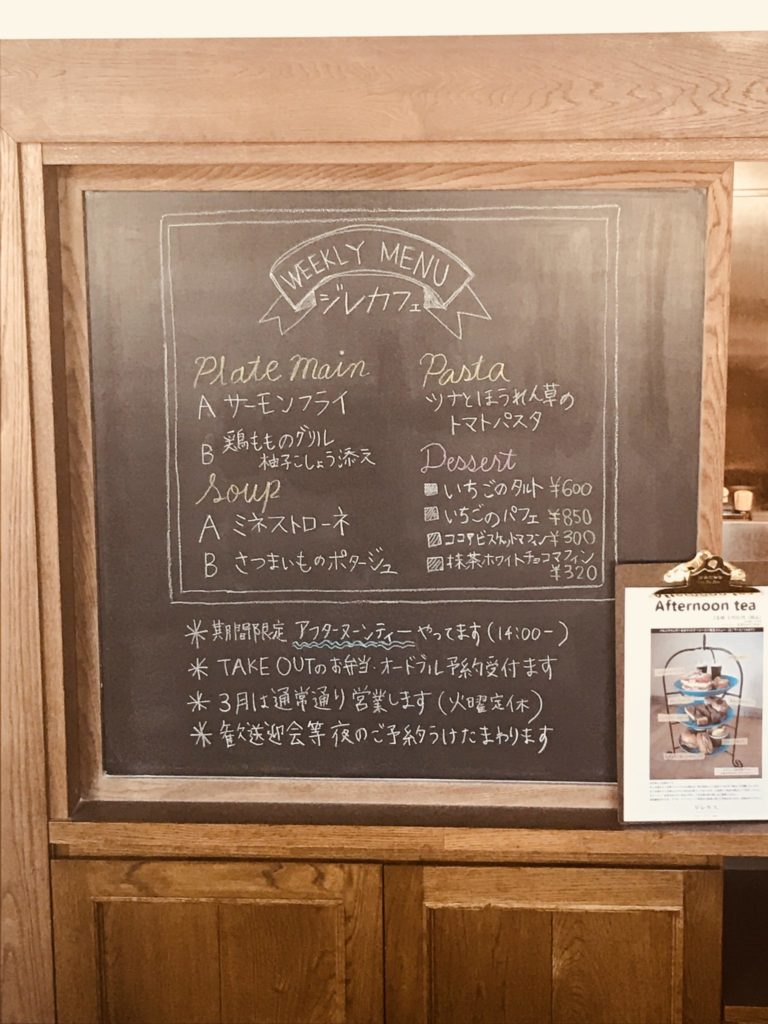 WEEKLY MENU
ジレカフェ
Plate Main
A サーモンフライ
B 鶏もものグリル
柚子こしょう添え
Soup
A ミネストローネ
B さつまいものポタージュ
Pasta
ツナとほうれん草の
トマトパスタ
Dessert
いちごのタルト ¥600
いちごのパフェ ¥850
ココアビスケットマフィン ¥300
抹茶ホワイトチョコマフィン
¥320
＊期間限定 アフターヌーンティー やってます(14:00ー)
＊TAKE OUTのお弁当・オードブル予約受付ます
＊3月は通常通り営業します(火曜定休)
＊歓送迎会等夜のご予約うけたまわります
Afternoon tea
ジレカフェ